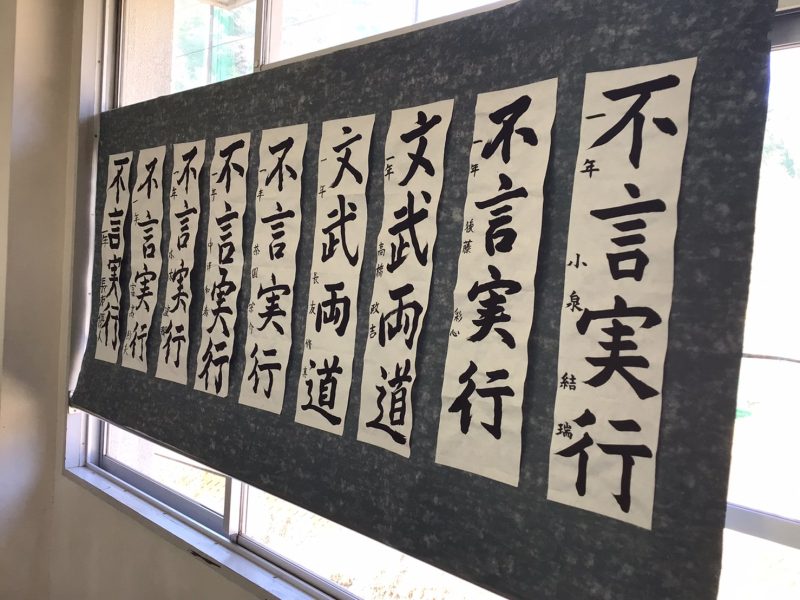 不言実行
一年
小泉結瑞
不言実行
一年
後藤彩心
文武両道
一年
高橋政吉
文武両道
一年
長友脩真
不言実行
一年
不言実行
不言実行
一年
不言実行
一年
不言実行
一年